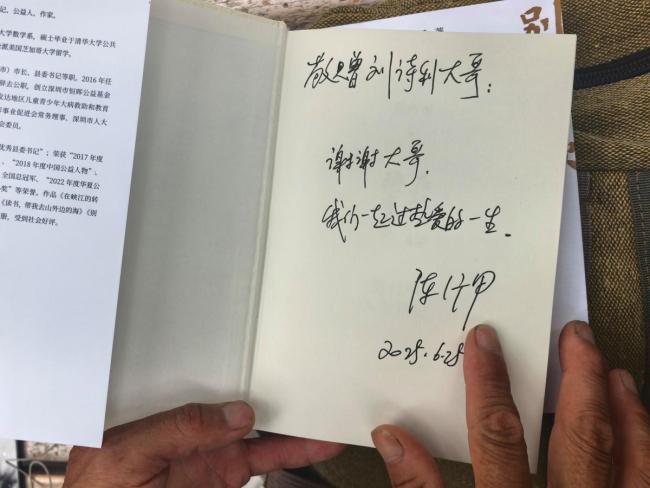 记，公益人、作家。
大学数学系，硕士毕业于清华大学公共
派美国芝加哥大学留学。
市）市长、县委书记等职。2016年任
辞去公职，创立深圳市恒晖公益基金
发达地区儿童青少年大病救助和教育
事业促进会常务理事，深圳市人大
会委员。
优秀县委书记”；荣获“2017年度
、“2018年度中国公益人物”、
全国总冠军、“2022年度华夏公
奖”等荣誉。作品《在峡江的转
《读书，带我去山外边的海》《别
册，受到社会好评。
敬赠刘诗利大哥：
谢谢大哥.
我们一起过热爱的一生.
陈行甲
2025.6.25